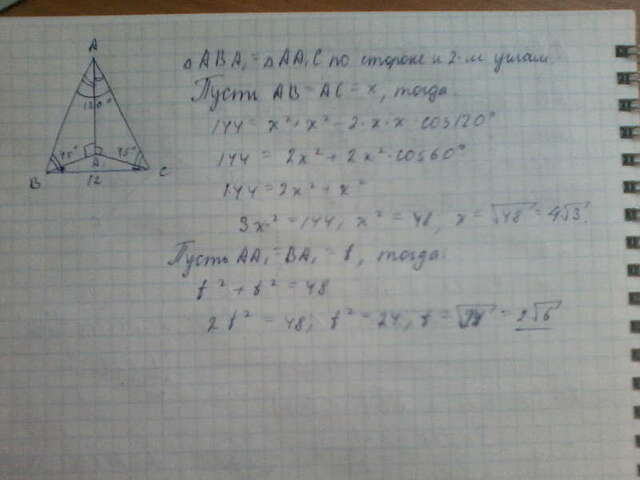 A
120°
45°
45°
A₁
B
12
C
△ABA₁ = △AA₁C по стороне и 2-м углам.
Пусть AB = AC = x, тогда:
144 = x² + x² - 2·x·x·cos120°
144 = 2x² + 2x²·cos60°
144 = 2x² + x²
3x² = 144; x² = 48, x = √48 = 4√3.
Пусть AA₁ = BA₁ = b, тогда:
b² + b² = 48
2b² = 48; b² = 24; b = √24 = 2√6